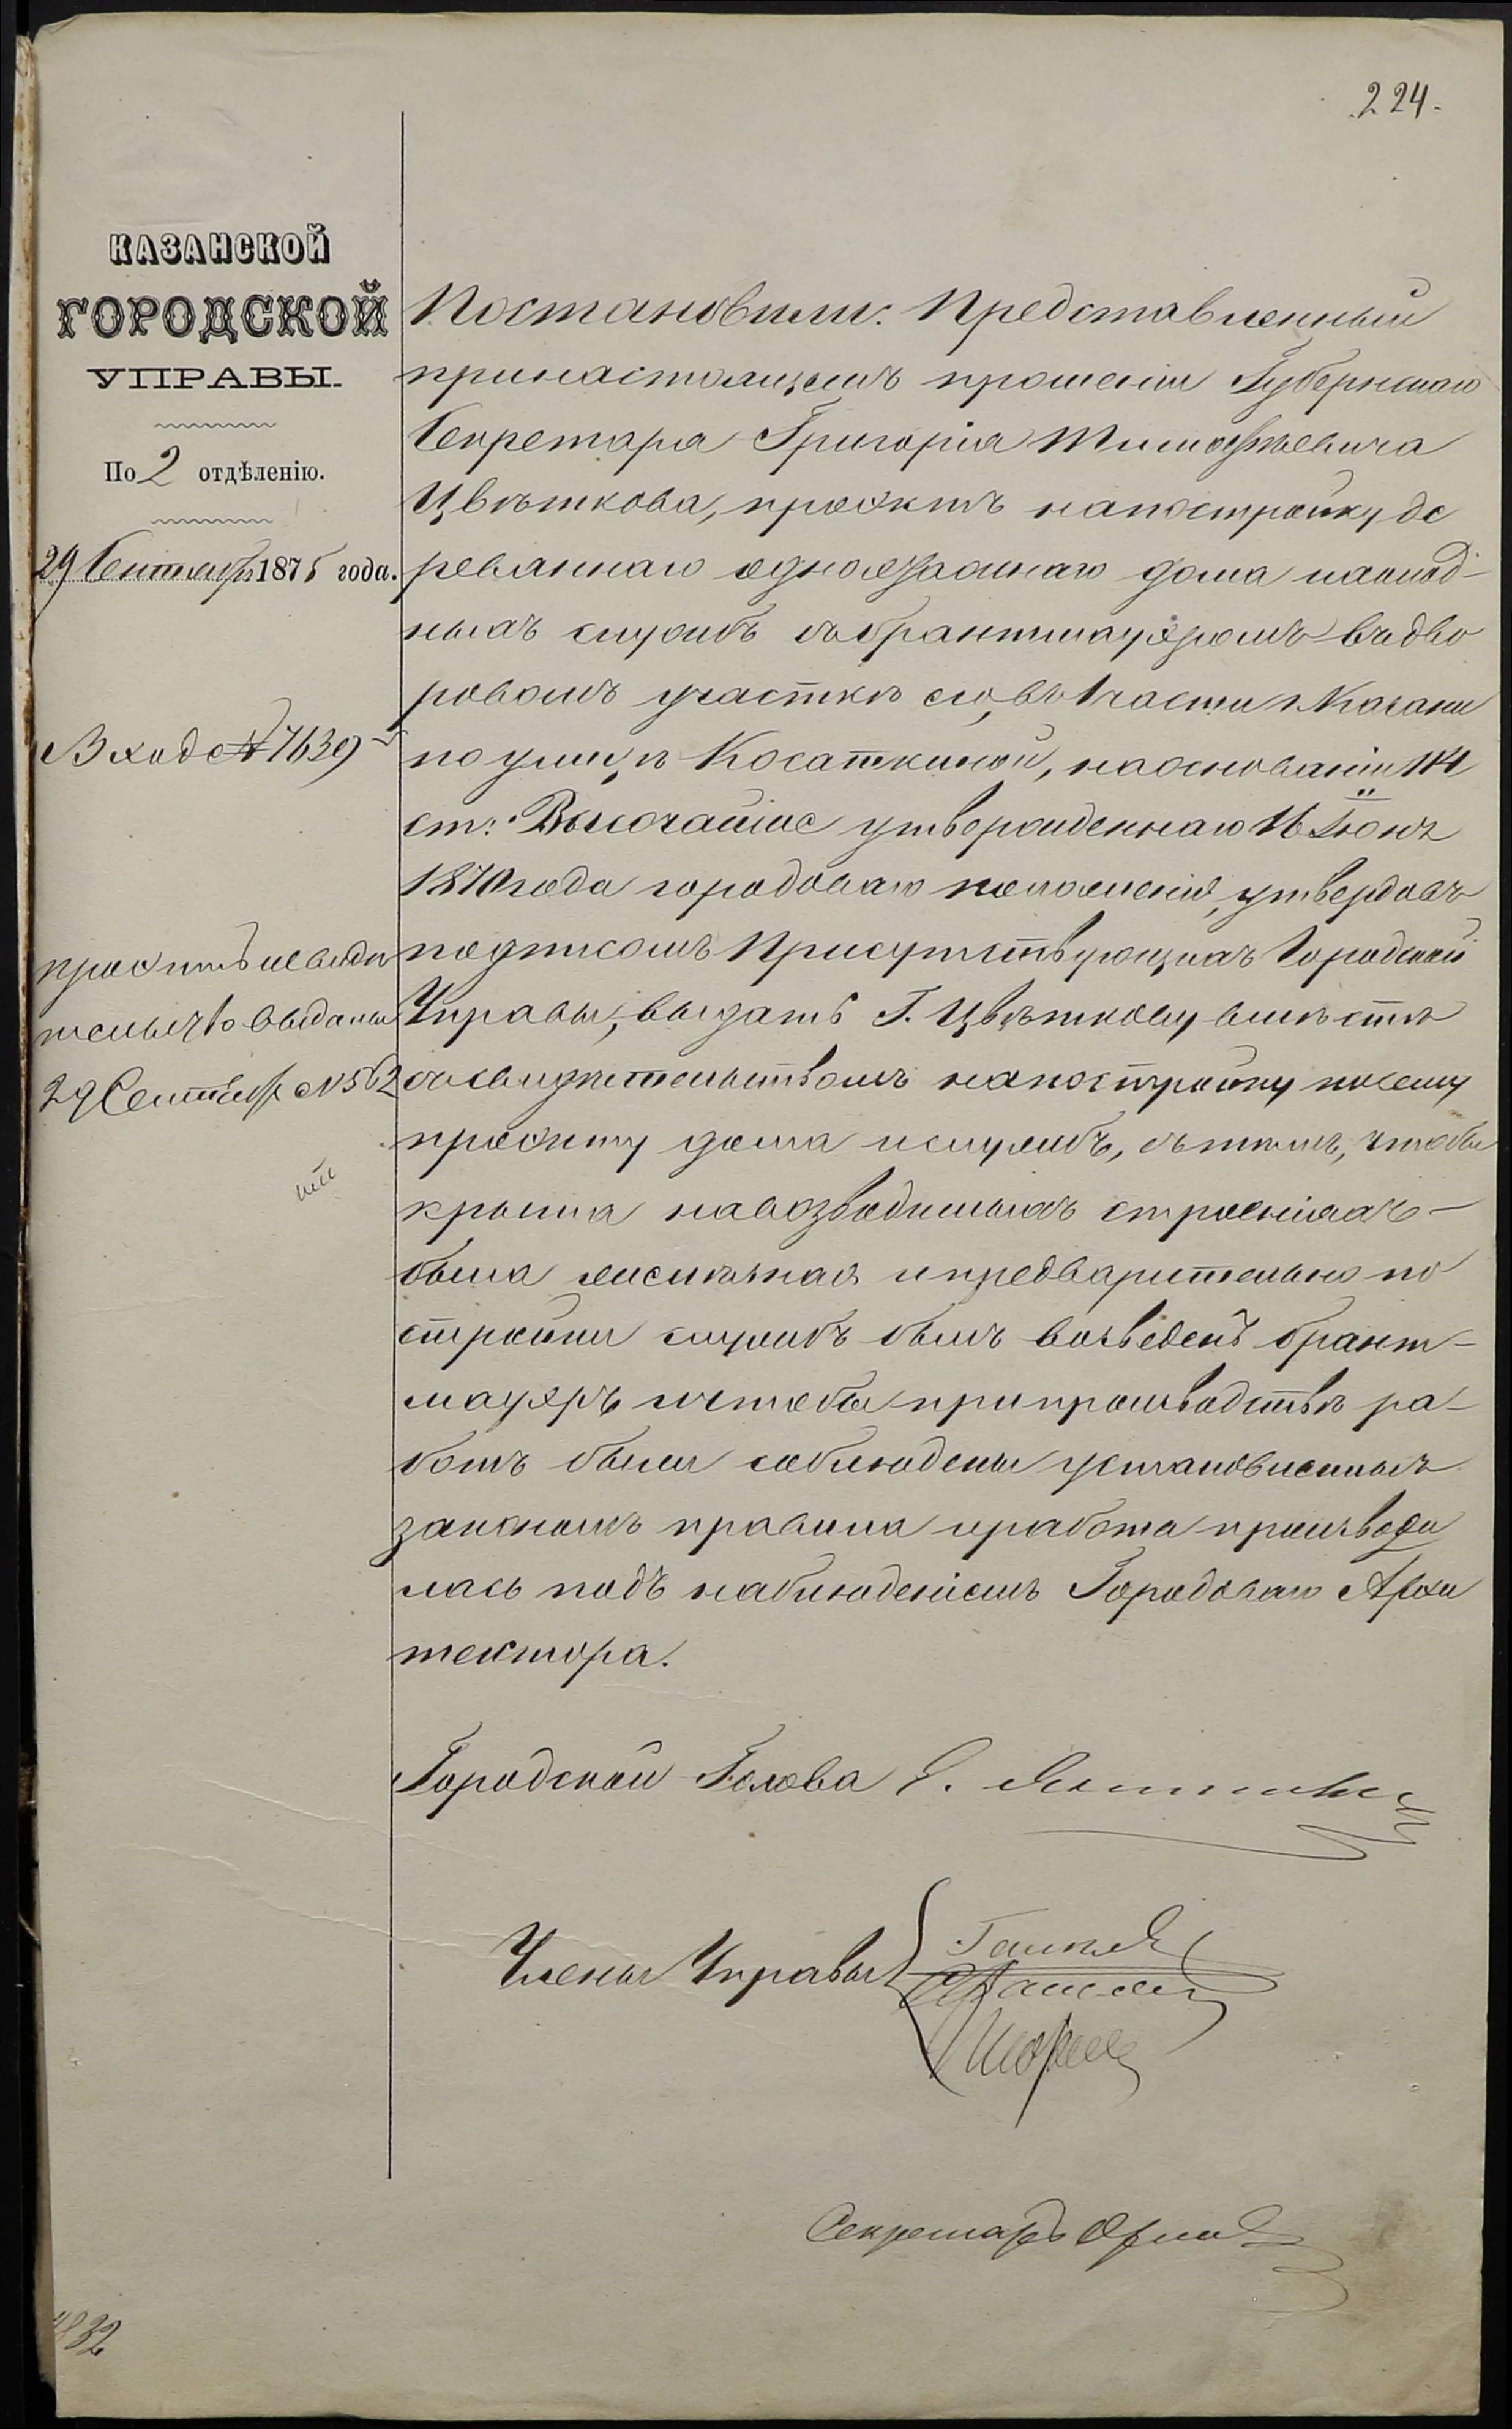 224.
КАЗАНСКОЙ
ГОРОДСКОЙ
УПРАВЫ.
По 2 отдѣленію.
29 Сентября 1875 года.
Вход № 7639
проэктъ и свидѣ
тельство выданы
29 Сентября № 562
Постановили: Представленный
принастоящемъ прошеніи Губернскаго
Секретаря Григорія Тимофѣевича
Цвѣткова, проэктъ напостройку де
ревяннаго одноэтажнаго дома ихолод-
ныхъ службъ събрантмауэромъ въдво
ровомъ участкѣ его, въ 1 части г. Казани
по улицѣ Косаткиной, наоснованіи 114
ст: Высочайше утвержденнаго 16 Іюня
1870 года городоваго положенія, утвердивъ
подписомъ Присутствующихъ Городской
Управы, выдать Г. Цвѣткову вмѣстѣ
сосвидѣтельствомъ напостройку посему
проэкту дома ислужбъ, сътѣмъ, чтобы
крыша навозводимыхъ строеніяхъ
была желѣзная ипредварительно по
стройки службъ былъ возведенъ брант-
мауэръ ичтобы припроизводствѣ ра-
ботъ были соблюдены установленныя
закономъ правила иработа производи
лась подъ наблюденіемъ Городоваго Архи
тектора.
Городской Голова
Члены Управы
Секретарь
832